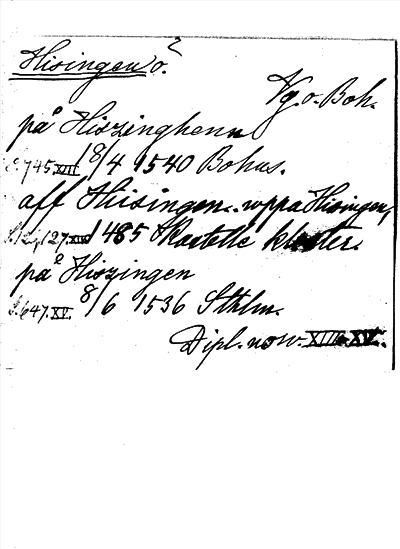 Hisingen ö.
Vg. o. Boh.
på Hiszinghenn
S. 745 XIII 18/4 1540 Bohus.
aff Hiisingen. uppa Hisingen,
127 XIII 1485 Kastelle kloster.
på Hiszingen
S. 647. XV. 8/6 1536 Sthlm.
Dipl. norv. XIII. XV.